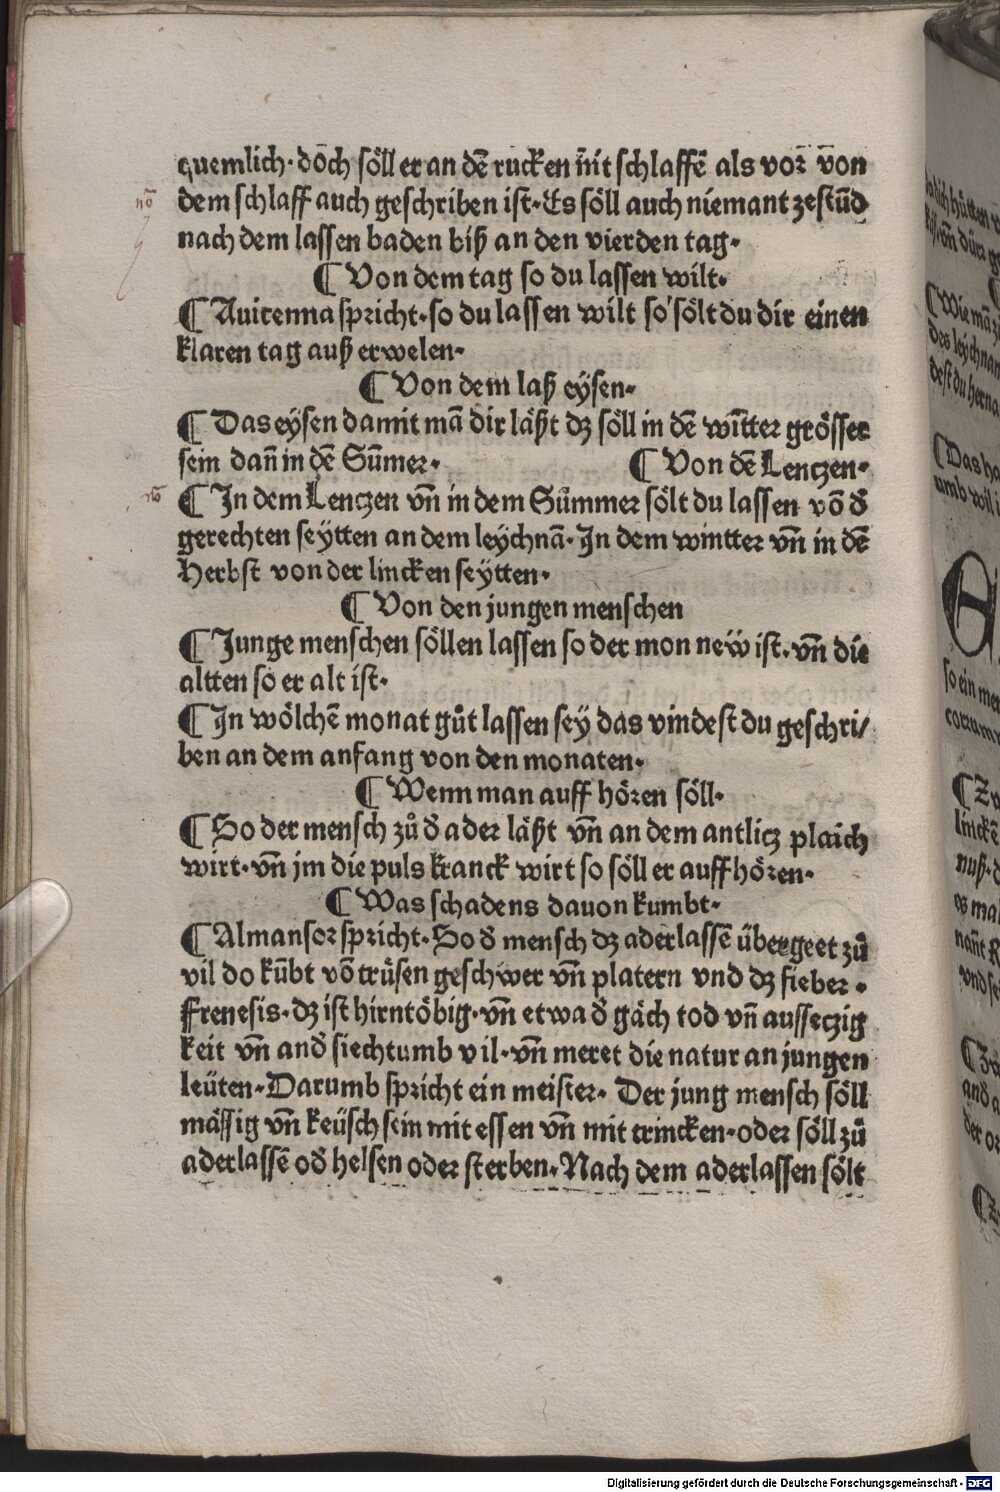 quemlich· doch söll er an dē rucken nit schlaffē als vor von
dem schlaff auch geschriben ist· Es söll auch niemant zestūd
nach dem lassen baden biß an den vierden tag·
¶ Von dem tag so du lassen wilt·
¶ Auicenna spricht· so du lassen wilt so sölt du dir einen
klaren tag auß erwelen·
¶ Von dem laß eysen·
¶ Das eysen damit mā dir läßt dz söll in dē wītter grösser
sein dañ in dē Sūmer· ¶ Von dē Lenczen·
¶ In dem Lenczen vñ in dem Summer sölt du lassen vō d̄
gerechten seytten an dem leychnā· In dem wintter vñ in dē
Herbst von der lincken seytten·
¶ Von den jungen menschen
¶ Junge menschen söllen lassen so der mon neẅ ist· vñ die
altten so er alt ist·
¶ In wölchē monat gůt lassen seÿ das vindest du geschri/
ben an dem anfang von den monaten·
¶ Wenn man auff hören söll·
¶ So der mensch zů d̄ ader läßt vñ an dem antlicz plaich
wirt· vñ jm die puls kranck wirt so söll er auff hören·
¶ Was schadens dauon kumbt·
¶ Almansor spricht· So d̄ mensch dz aderlassē übergeet zů
vil do kūbt vō trüsen geschwer vñ platern vnd dz fieber·
Frenesis· dz ist hirntöbig· vñ etwa d̄ gäch tod vñ aussetzig
keit vñ and̄ siechtumb vil· vñ meret die natur an jungen
leüten· Darumb spricht ein meister· Der jung mensch söll
mässig vñ keüsch sein mit essen vñ mit trincken· oder söll zů
aderlassē od̄ helsen oder sterben· Nach dem aderlassen sölt
Digitalisierung gefördert durch die Deutsche Forschungsgemeinschaft - DFG